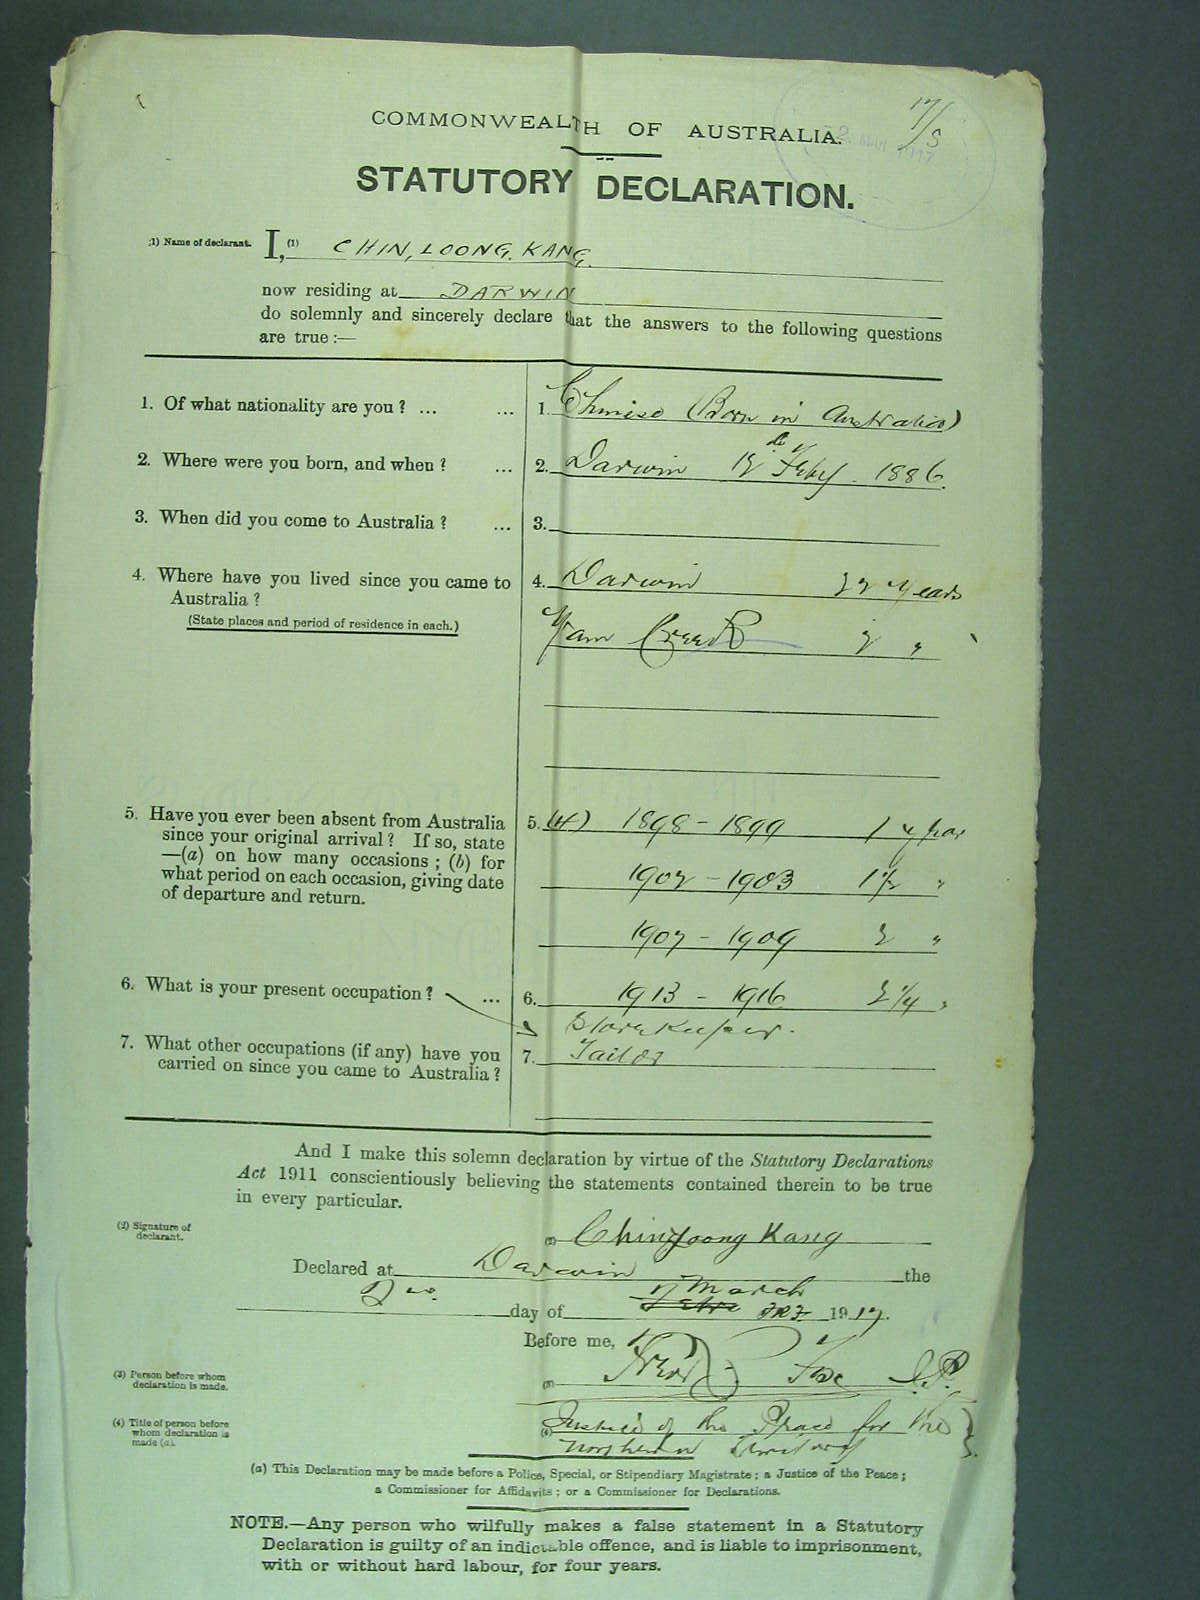 17/5
COMMONWEALTH OF AUSTRALIA.
STATUTORY DECLARATION.
(1) Name of declarant. I, (1) CHIN, LOONG. KANG.
now residing at DARWIN
do solemnly and sincerely declare that the answers to the following questions
are true :—
1. Of what nationality are you ? ... ... 1. Chinese (Born in Australia)
2. Where were you born, and when ? ... 2. Darwin 12 Feby. 1886.
3. When did you come to Australia ? ... 3.
4. Where have you lived since you came to 4. Darwin 22 Years
Australia ?
(State places and period of residence in each.) Yam Creek 2 "
5. Have you ever been absent from Australia 5. (4) 1898 - 1899 1 year
since your original arrival ? If so, state
—(a) on how many occasions ; (b) for
what period on each occasion, giving date 1902 - 1903 1½ "
of departure and return.
1907 - 1909 2 "
6. What is your present occupation ? ... 6. 1913 - 1916 2¼ "
Storekeeper.
7. What other occupations (if any) have you 7. Tailor
carried on since you came to Australia ?
And I make this solemn declaration by virtue of the Statutory Declarations
Act 1911 conscientiously believing the statements contained therein to be true
in every particular.
(2) Signature of
declarant.
(2) Chin Loong Kang
Declared at Darwin the
2nd day of March 1917.
Before me,
(3) Person before whom
declaration is made.
(3) Fred J.P.
(4) Title of person before
whom declaration is
made (a).
(4) Justice of the Peace for the
Northern Territory
(a) This Declaration may be made before a Police, Special, or Stipendiary Magistrate ; a Justice of the Peace ;
a Commissioner for Affidavits ; or a Commissioner for Declarations.
NOTE.—Any person who wilfully makes a false statement in a Statutory
Declaration is guilty of an indictable offence, and is liable to imprisonment,
with or without hard labour, for four years.